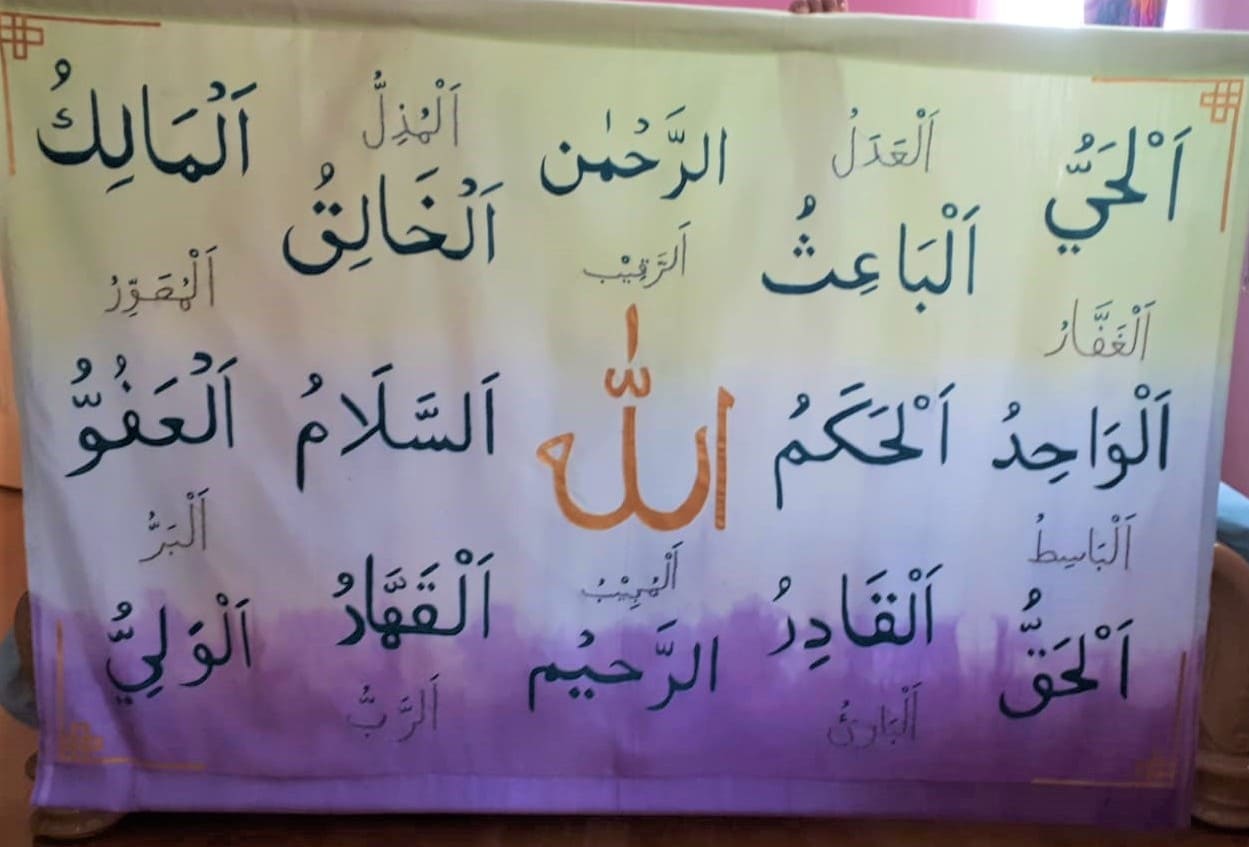 اَلْحَيُّ اَلْعَدَلُ الرَّحْمٰن اَلْمُذِلُّ اَلْمَالِكُ
اَلْبَاعِثُ اَلْخَالِقُ
اَلْغَفَّارُ اَلرَّقِيْب اَلْمُصَوِّرُ
اَلْوَاحِدُ اَلْحَكَمُ اللّٰه اَلسَّلَامُ اَلْعَفُوُّ
اَلْبَاسِطُ اَلْمُجِيْبُ اَلْبَرُّ
اَلْحَقُّ اَلْقَادِرُ الرَّحيُم اَلْقَهَّارُ اَلْوَلِيُّ
اَلْبَارِئُ اَلرَّبُّ